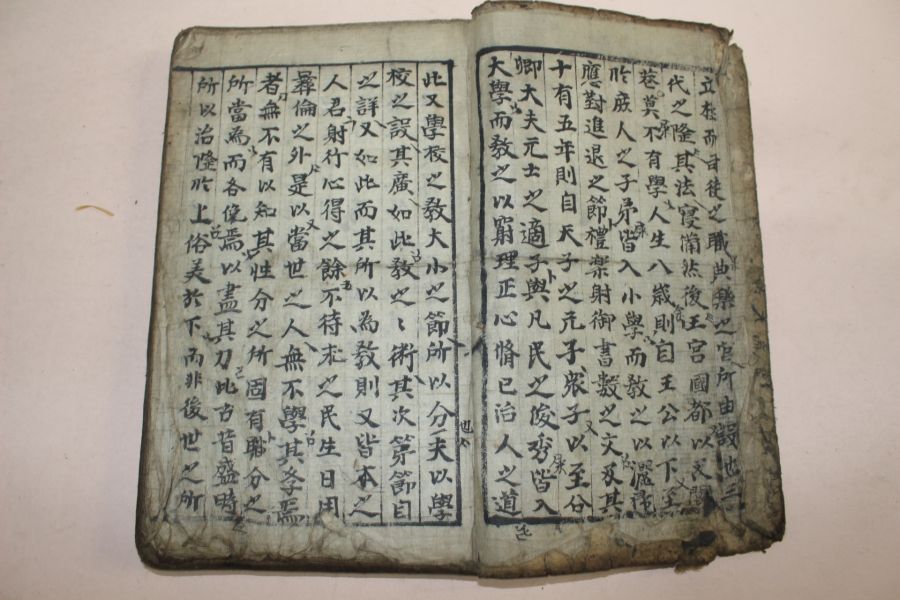 立極而司徒之職典樂之官所由設也三
代之隆其法寖備然後王宮國都以及閭
巷莫不有學人生八歲則自王公以下至
於庶人之子弟皆入小學而敎之以灑掃
應對進退之節禮樂射御書數之文及其
十有五年則自天子之元子衆子以至公
卿大夫元士之適子與凡民之俊秀皆入
大學而敎之以窮理正心脩己治人之道
此又學校之敎大小之節所以分夫以學
校之設其廣如此敎之〻術其次第節目
之詳又如此而其所以為敎則又皆本之
人君躬行心得之餘不待求之民生日用
彛倫之外是以當世之人無不學其斈焉
者無不有以知其性分之所固有職分之
所當為而各俛焉以盡其力此古昔盛時
所以治隆於上俗美於下而非後世之所